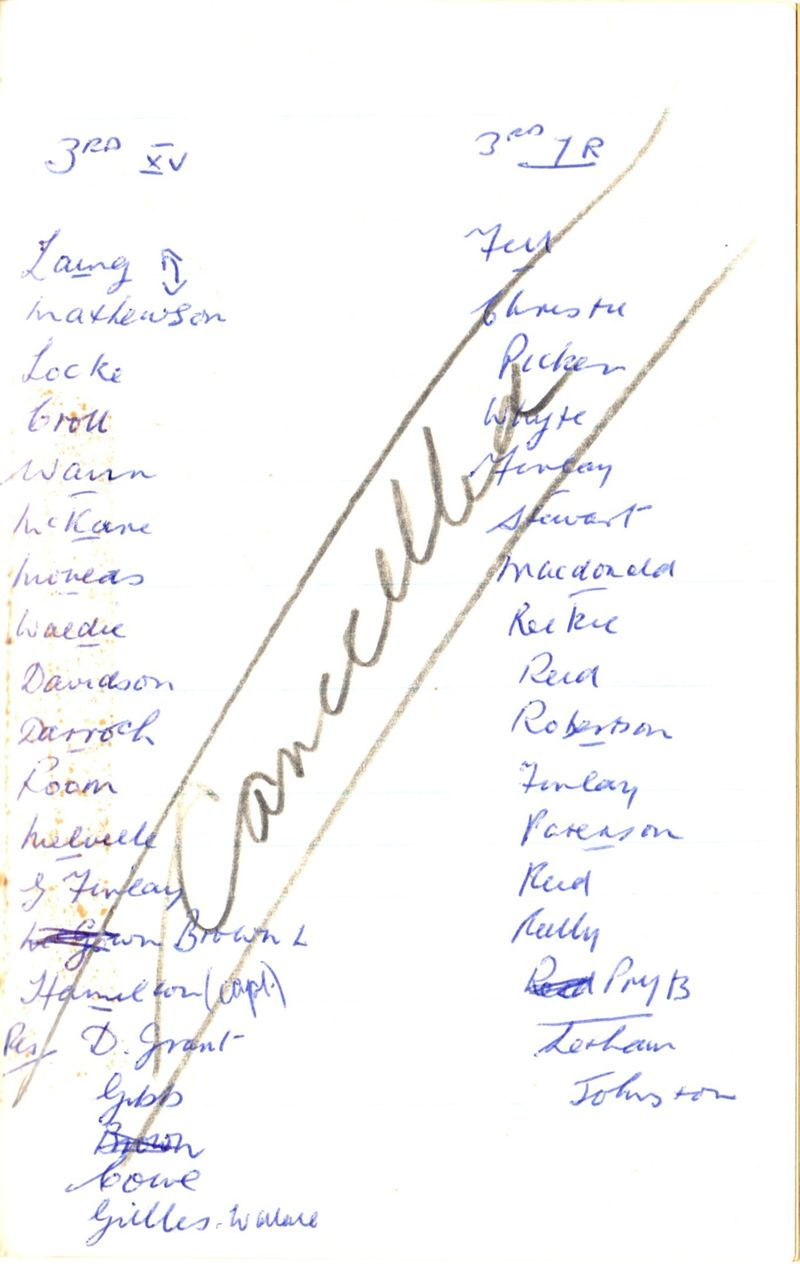 3RD XV
Laing
Mathewson
Locke
Croll
Wann
McKane
Waldie
Davidson
Darroch
Room
Melville
G Finlay
Brown L
Hamilton (capt.)
Res D. Grant
Gibb
Brown
Cowe
Gillies. Wallace
3RD 1R
Christie
Picken
Whyte
Finlay
Stewart
Macdonald
Reekie
Reid
Robertson
Finlay
Paterson
Reid
Reilly
Johnston
Cancelled